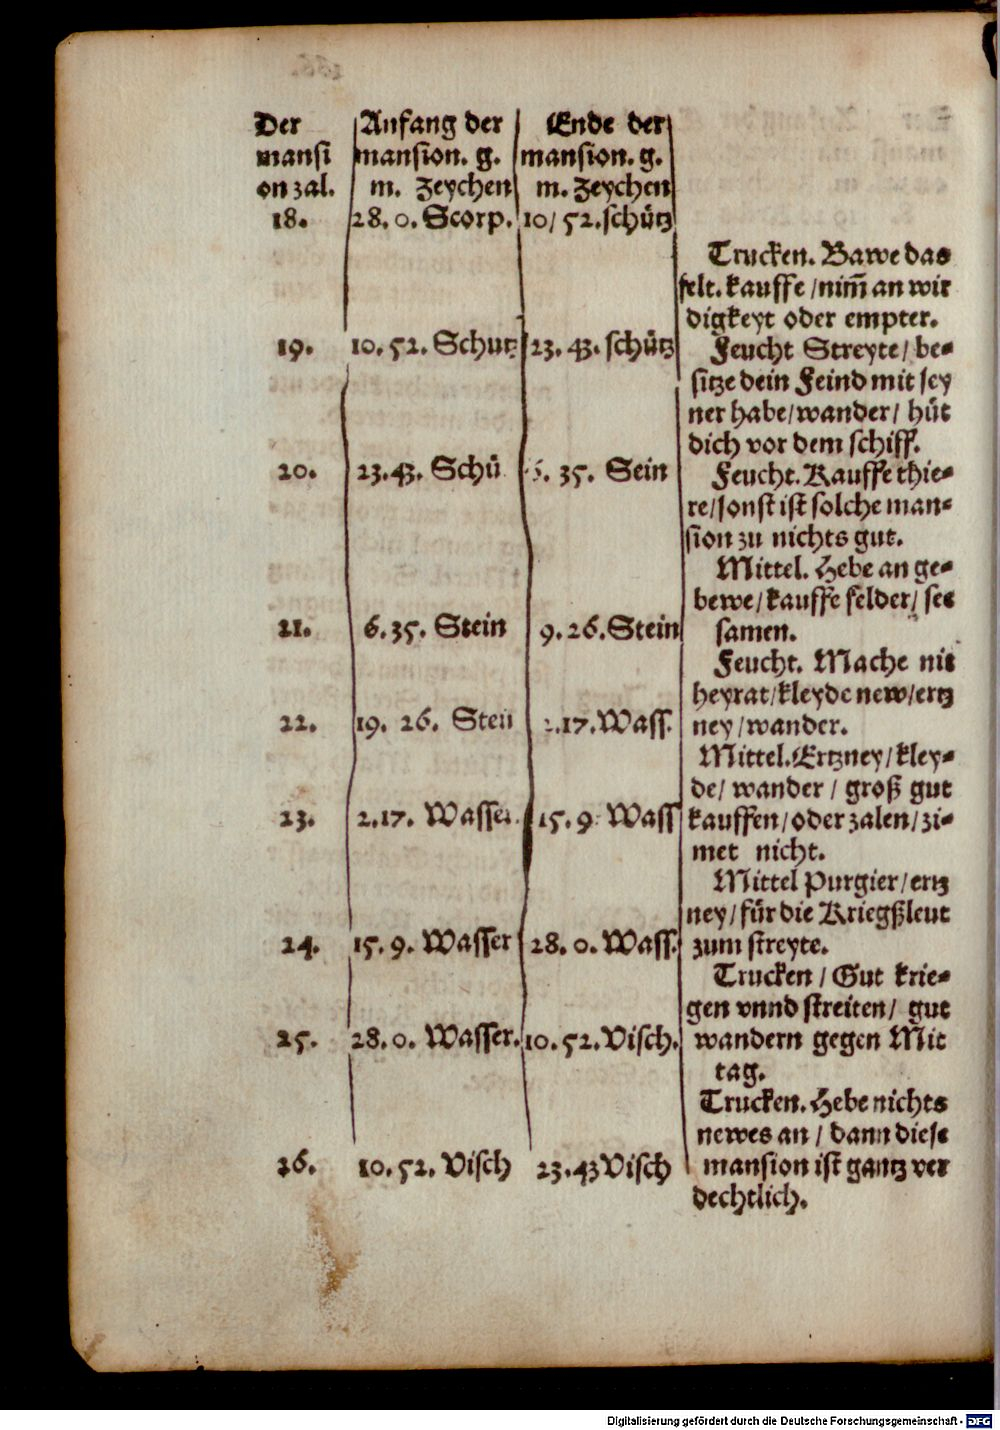 Der Anfang der Ende der
mansi mansion. g. mansion. g.
on zal. m. Zeychen m. Zeychen
18. 28. 0. Scorp. 10/ 52. schütz
Trucken. Bawe das
felt. kauffe /nim̄ an wir
digkeyt oder empter.
19. 10. 52. Schutz 23. 43. schütz Feucht Streyte/ be-
sitze dein Feind mit sey
ner habe/wander/ hüt
dich vor dem schiff.
20. 23.43. Schü 6. 35. Sein Feucht. Kauffe thie-
re/sonst ist solche man-
sion zu nichts gut.
Mittel. Hebe an ge-
bewe/ kauffe felder/ see
21. 6. 35. Stein 9. 26. Stein samen.
Feucht. Mache nit
heyrat/kleyde new/ertz
22. 19. 26. Stein 2.17. Wass. ney/wander.
Mittel. Ertzney/ kley-
de/ wander / groß gut
23. 2.17. Wasser 15. 9. Wass kauffen/oder zalen/zi-
met nicht.
Mittel Purgier/ertz
ney/für die Kriegßleut
24. 15. 9. Wasser 28. 0. Wass. zum streyte.
Trucken / Gut krie-
gen vnnd streiten/ gut
25. 28. 0. Wasser. 10. 52. Visch. wandern gegen Mit
tag.
Trucken. Hebe nichts
newes an / dann diese
26. 10. 52. Visch 23. 43 Visch mansion ist gantz ver
dechtlich.
Digitalisierung gefördert durch die Deutsche Forschungsgemeinschaft - DFG